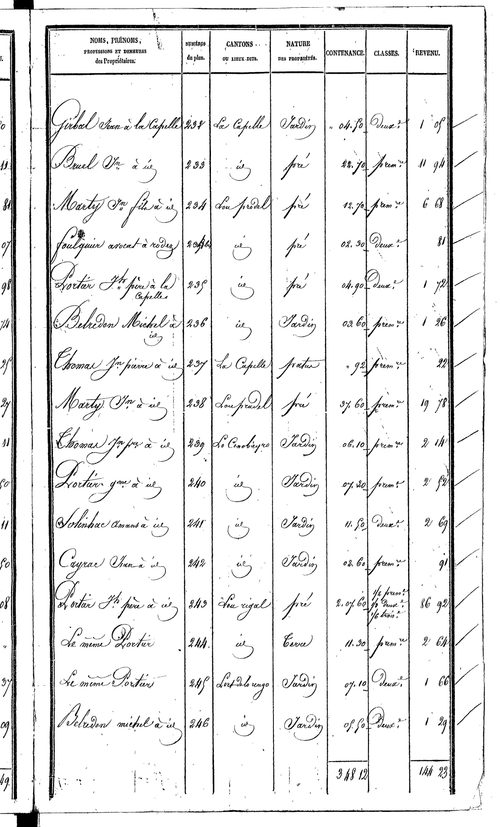 NOMS, PRÉNOMS, PROFESSIONS ET DEMEURES des Propriétaires. NUMÉROS du plan. CANTONS OU LIEUX-DITS. NATURE DES PROPRIÉTÉS. CONTENANCE. CLASSES. REVENU.
Girbal Jean à la Capelle 232 La Capelle Jardin " 04.50 Deux.e 1 05
Bruel Jn à id 233 id pré 22.70 prem.re 11 94
Marty Jn fils à id 234 Lou pradel pré 12.70 prem.re 6 68
foulquier avocat à rodez 234 bis id pré 02.30 Deux.e 81
Portier Jh père à la Capelle 235 id pré 04.90 Deux.e 1 72
Belredon Michel à id 236 id Jardin 03.60 prem.re 1 26
Thomas Jn pierre à id 237 La Capelle patus " 92 prem.re 22
Marty Jn à id 238 Lou pradel pré 37.60 prem.re 19 78
Thomas Jn pre à id 239 Jardin 06.10 prem.re 2 14
Portier à id 240 id Jardin 07.30 prem.re 2 52
Solinhac à id 241 id Jardin 11.50 Deux.e 2 69
Cayrac Jean à id 242 id Jardin 02.60 prem.re 91
Portier Jh père à id 243 Lou rigal pré 2.07.60 1/2 prem.re 86 92
Le même Portier 244 id Terre 11.30 prem.re 2 64
Le même Portier 245 Jardin 07.10 Deux.e 1 66
Belredon michel à id 246 id Jardin 05.50 Deux.e 1 29
3 48 12 144 23